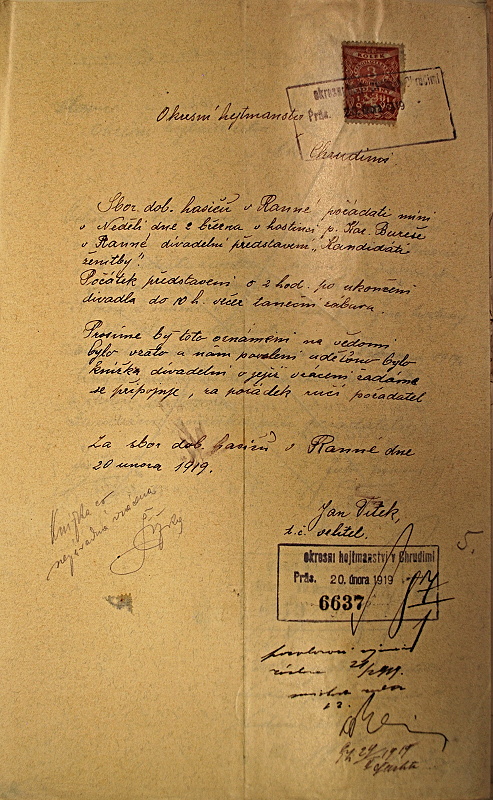 okresní Chrudimi
Präs. 1919
3
Okresní hejtmanství
Chrudimi
Sbor dob. hasičů v Ranné pořádati míní
v Neděli dne 2 března v hostinci p. Václ. Bureše
v Ranné divadelní představení „Kandidáti
ženitby"
Počátek představení o 2 hod. po ukončení
divadla do 10 h. večer taneční zábava.
Prosíme by toto oznámení na vědomí
bylo vzato a nám povolení uděleno bylo
knížka divadelní o jejíž vrácení žádáme
se připojuje, za pořádek ručí pořadatel
Za sbor dob. hasičů v Ranné dne
20 února 1919.
Jan Vítek,
t.č. velitel.
Knížka co
nezávadná vrácena
5.
okresní hejtmanství v Chrudimi
Präs. 20. února 1919
6637